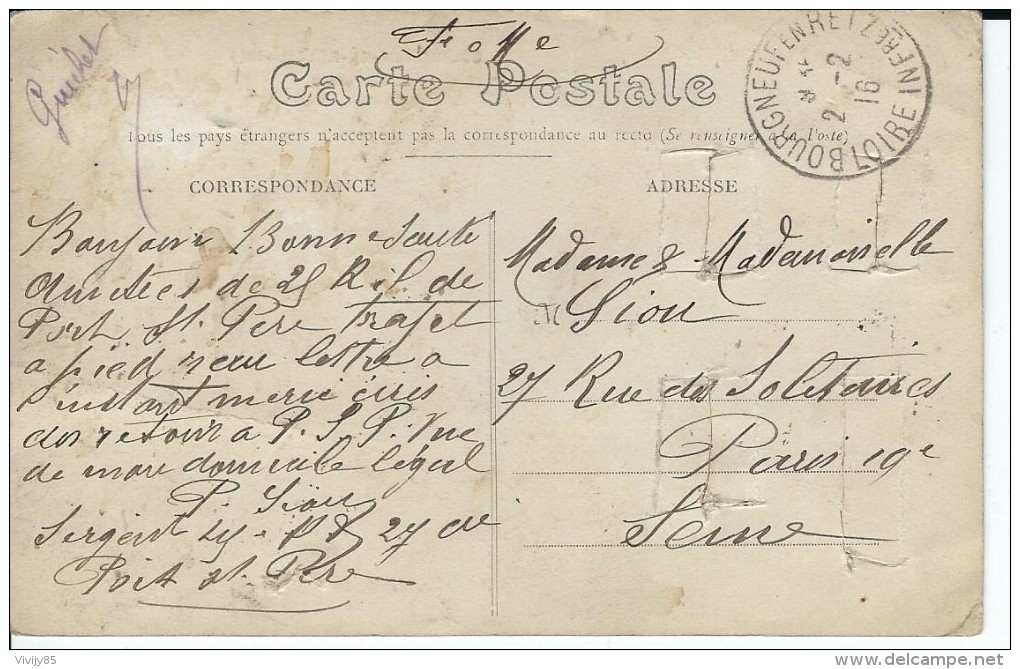 Guichet
F M
Carte Postale
Tous les pays étrangers n'acceptent pas la correspondance au recto (Se renseigner à la Poste)
BOURGNEUF EN RETZ
LOIRE INFRE
2 - 2
16
CORRESPONDANCE
ADRESSE
Bonjour Bonne Santé
Amitiés de 25 Kil. de
Port St. Père trajet
a pied reçu lettre a
l'instant merci
retour a P. S. P. Vue
de mon domicile légal
P. Siou
Sergent 27 de
Port St. Père
Madame & Mademoiselle
M Siou
27 Rue des Solitaires
Paris 19e
Seine
Vivijy85
delcampe.net